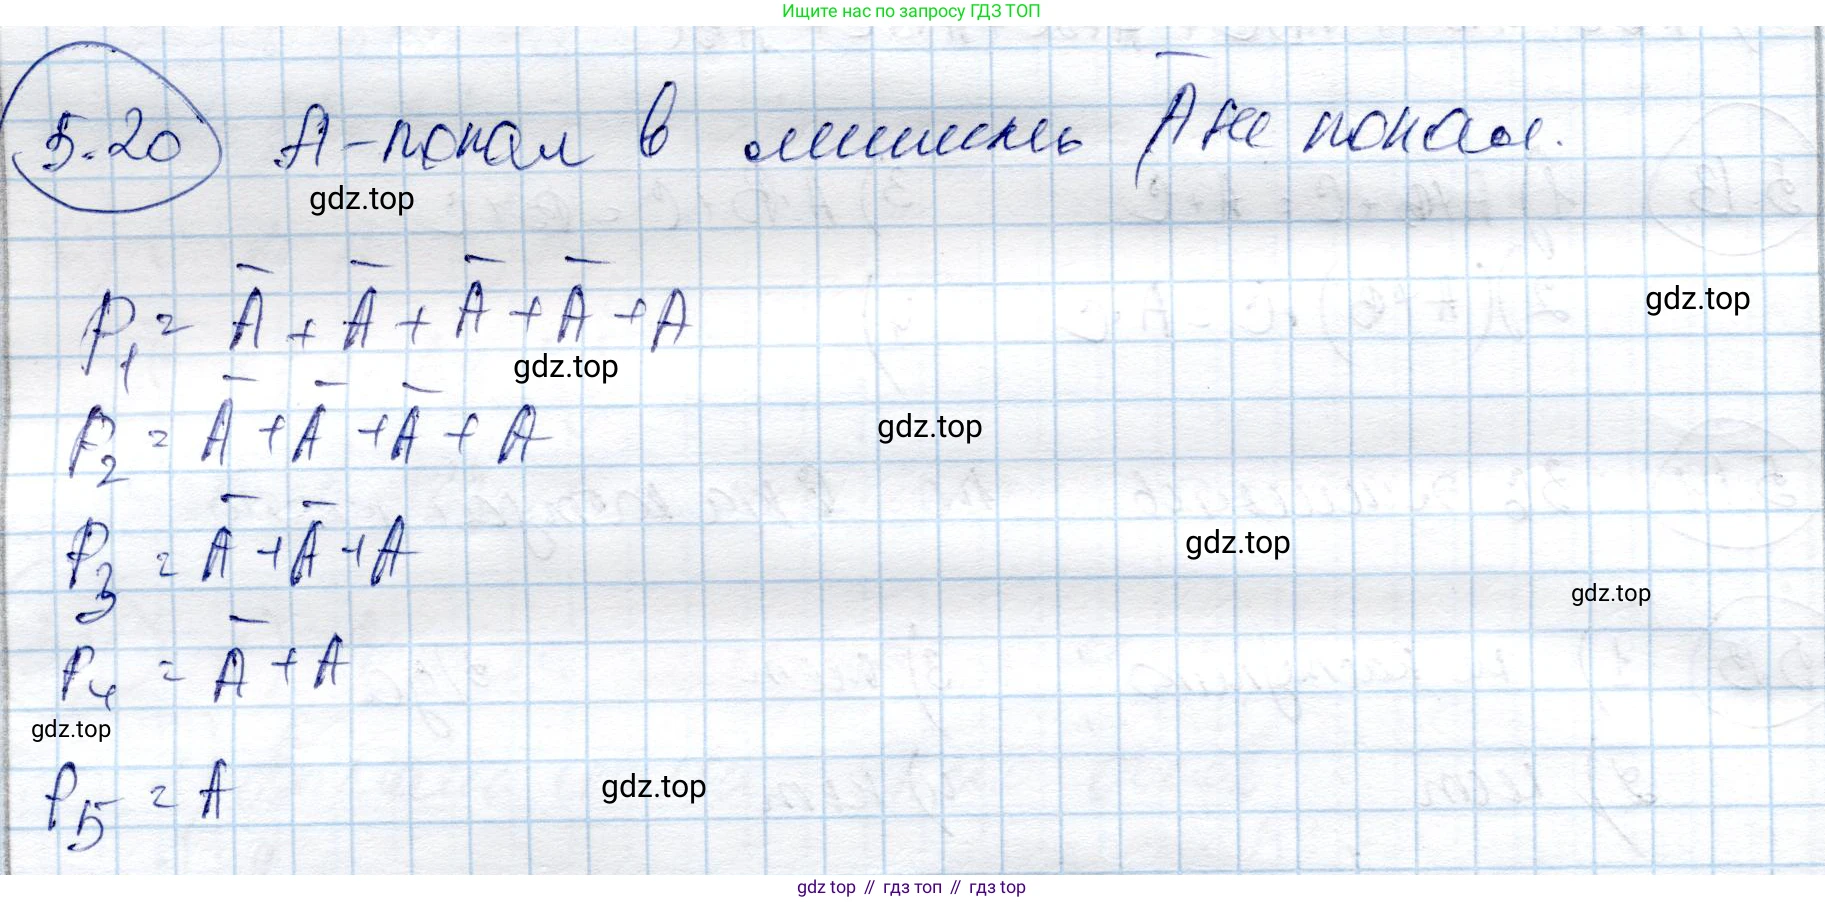 Ищите нас по запросу ГДЗ ТОП
5.20 A - попал в мишень Ā не попал.
gdz.top
P₁ = Ā + Ā + Ā + Ā + A
gdz.top
gdz.top
P₂ = Ā + Ā + Ā + A
gdz.top
P₃ = Ā + Ā + A
gdz.top
gdz.top
P₄ = Ā + A
gdz.top
P₅ = A
gdz.top
gdz top // гдз топ // gdz top